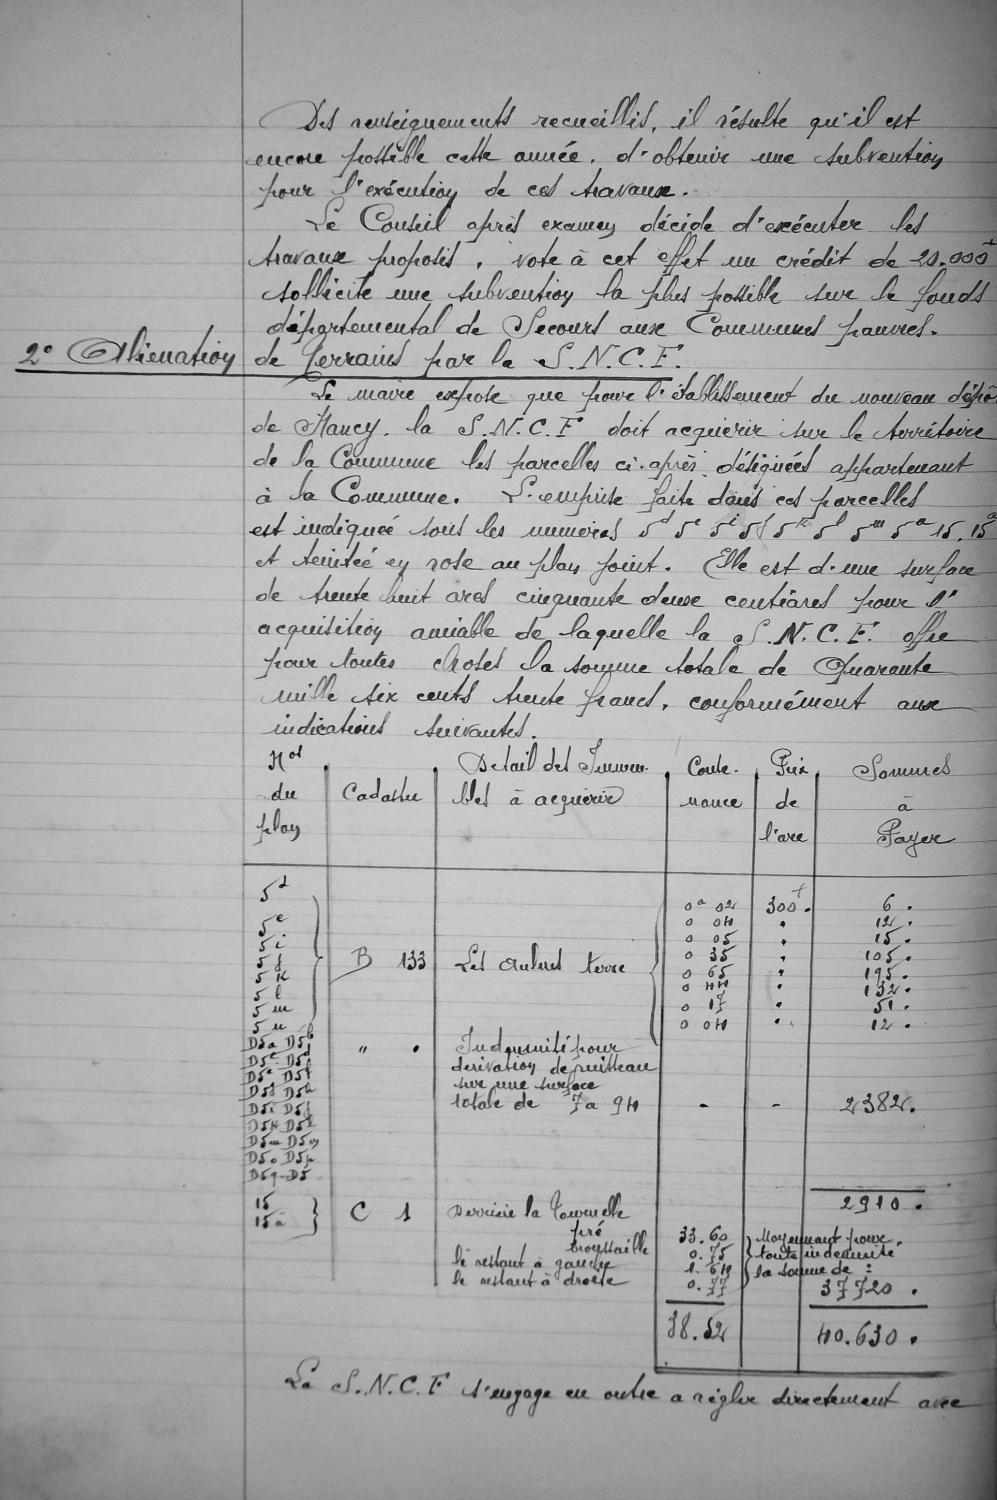 Des renseignements recueillis, il résulte qu'il est
encore possible cette année, d'obtenir une subvention
pour l'exécution de ces travaux.
Le Conseil après examen décide d'exécuter les
travaux proposés, vote à cet effet un crédit de 20.000f
sollicite une subvention la plus possible sur le fonds
départemental de Secours aux Communes pauvres.
2° Alienation de Terrains par la S.N.C.F.
Le maire expose que pour l'établissement du nouveau dépôt
de Nancy, la S.N.C.F doit acquérir sur le térritoire
de la Commune les parcelles ci-après désignées appartenant
à la Commune. L'emprise faite dans ces parcelles
est indiquée sous les numéros 5d 5e 5i 5j 5k 5l 5m 5n 15. 15a
et teintée en rose au plan joint. Elle est d'une surface
de trente huit ares cinquante deux centiares pour l'
acquisition amiable de laquelle la S.N.C.F. offre
pour toutes choses la somme totale de Quarante
mille six cents trente francs, conformément aux
indications suivantes.
Nos du plan
Cadastre
Detail des Immeubles à acquérir
Contenance
Prix de l'are
Sommes à Payer
5d 0a 02 300f. 6.
5e 0 04 " 12.
5i 0 05 " 15.
5j B 133 Les Aulnes terre 0 35 " 105.
5k 0 65 " 195.
5l 0 44 " 132.
5m 0 17 " 51.
5n 0 04 " 12.
D5a D5b " . Indemnité pour
D5c D5d dérivation de ruisseau
D5e D5f sur une surface
D5g D5h totale de 7a 94 - - 2382.
D5i D5j
D5k D5l
D5m D5n
D5o D5p
D5q-D5
2910.
15 C 1 Derrière la Tournelle
15a pré 33.60 Moyennant pour
broussaille 0.75 toute indemnité
le restant à gauche 1.64 la somme de :
le restant à droite 0.77 37720.
38.52 40.630.
La S.N.C.F s'engage en outre a régler directement avec